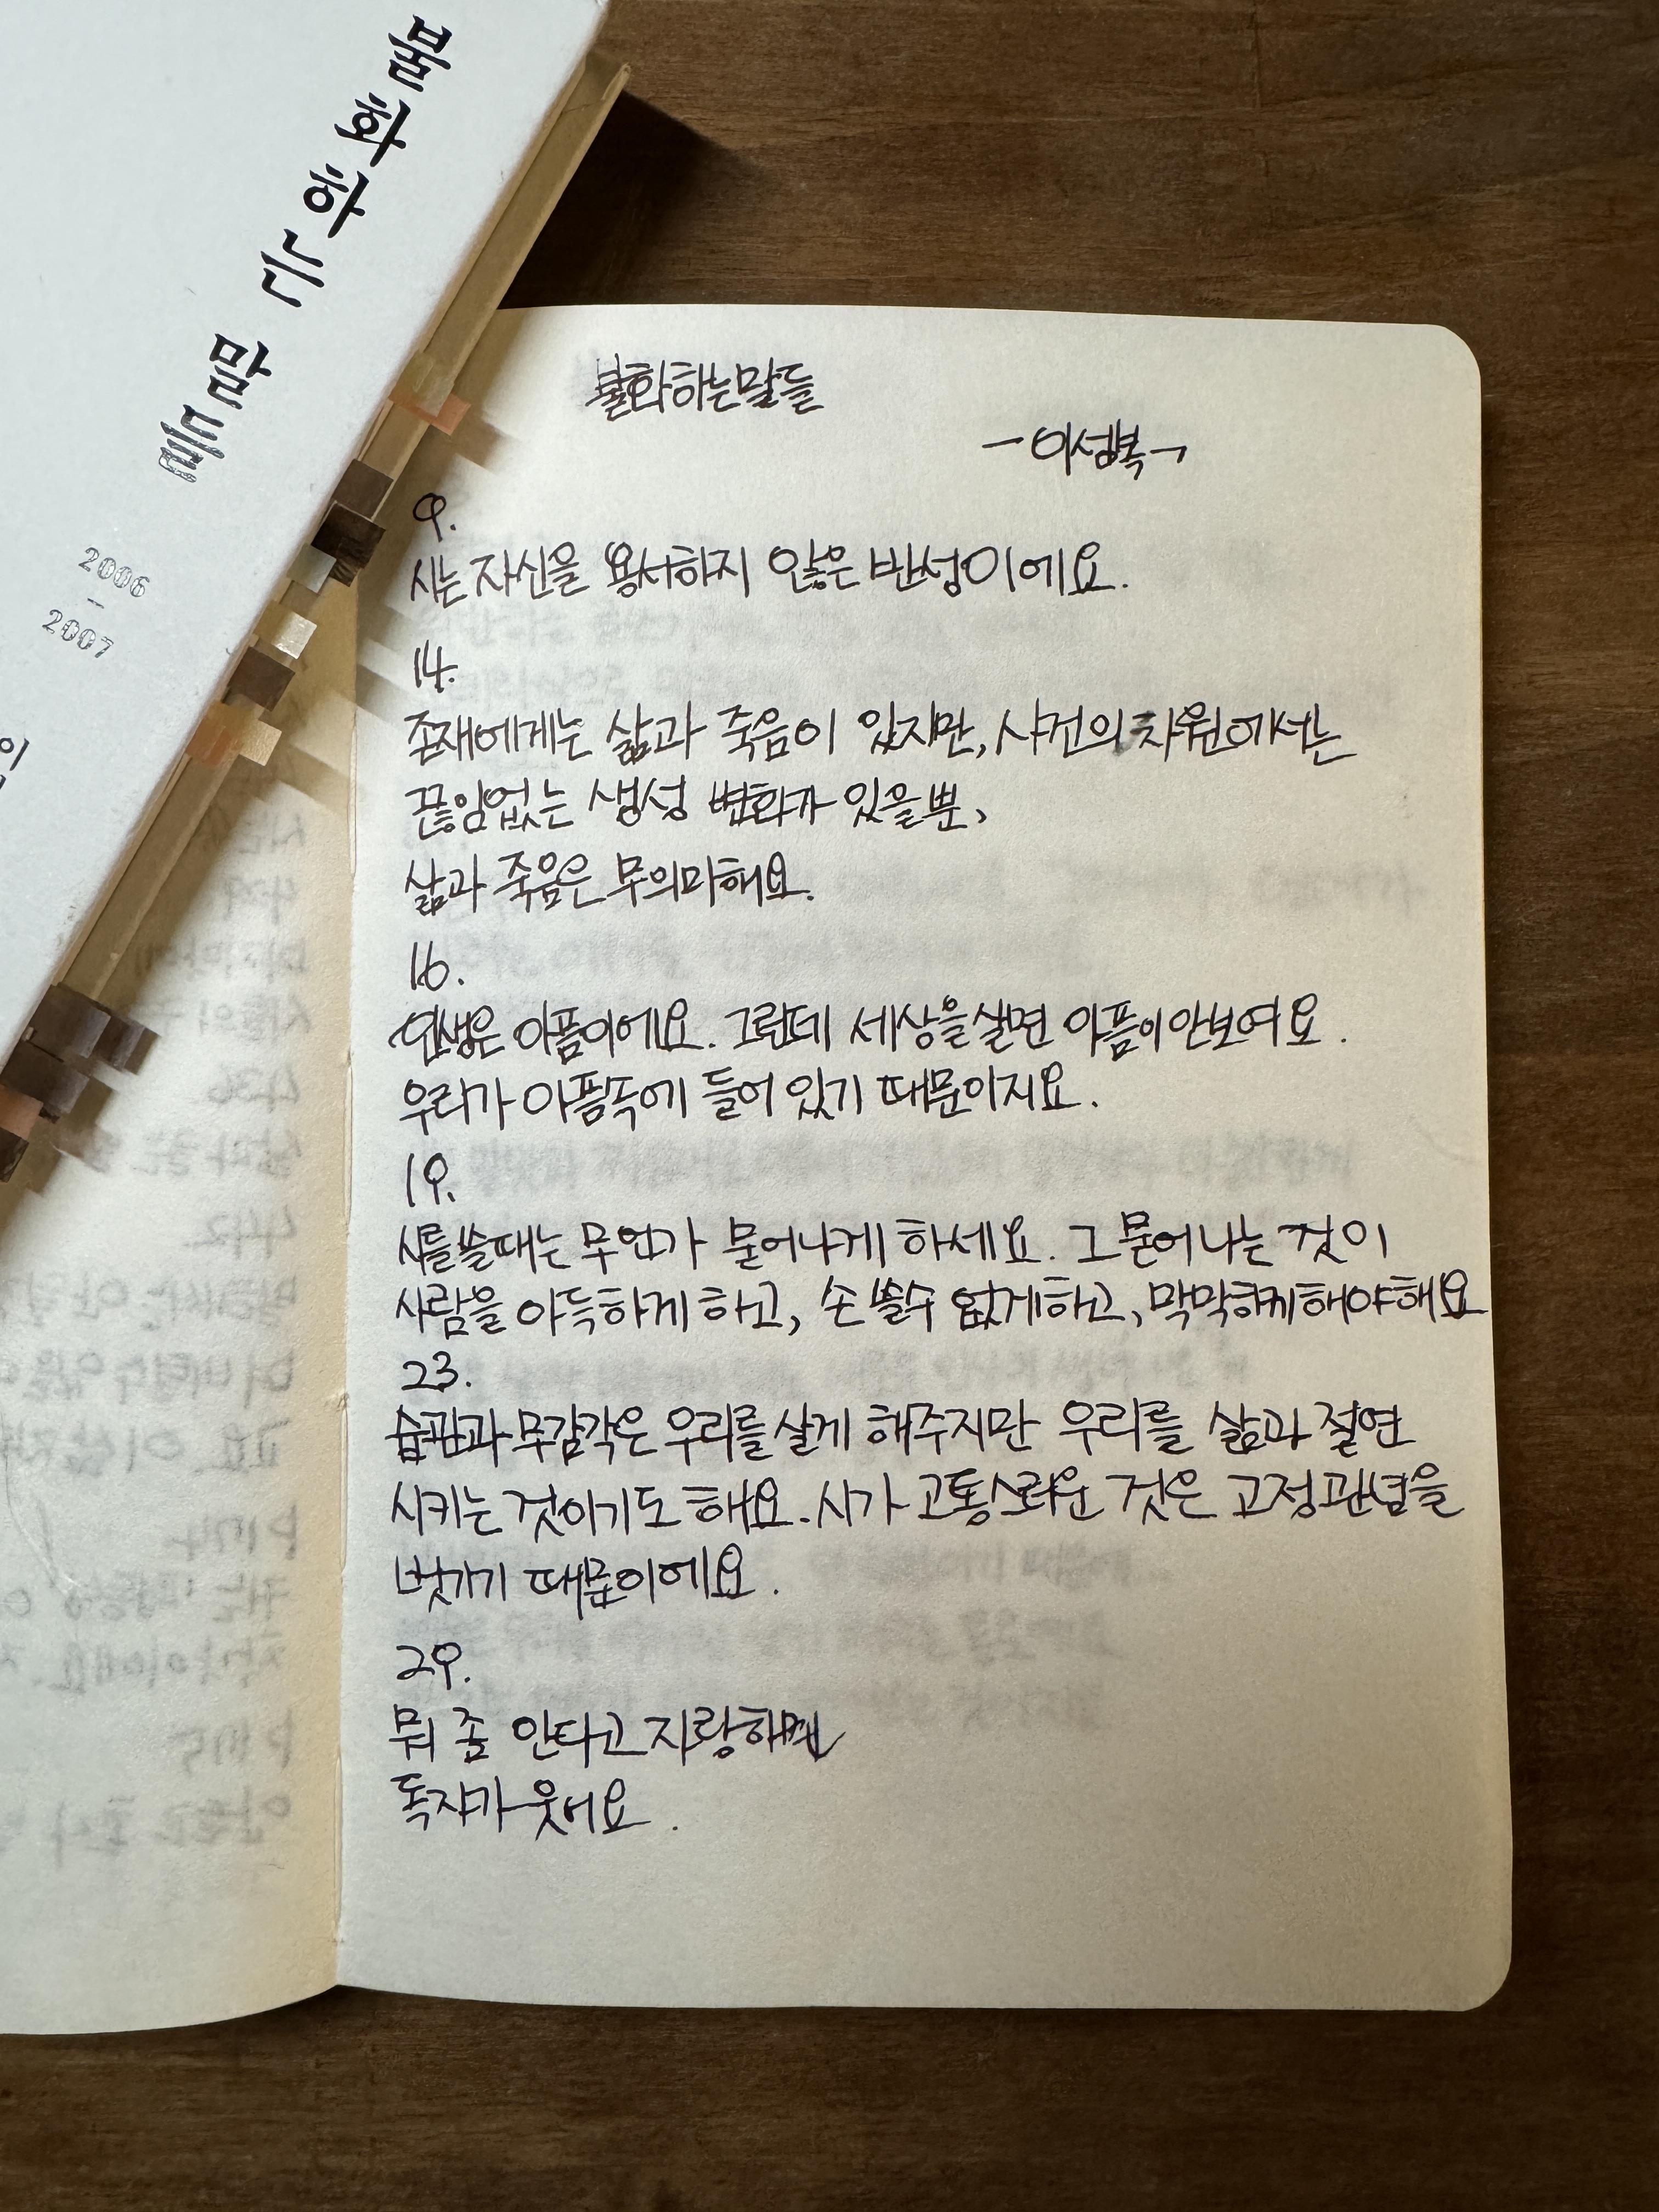 불화하는 말들
2006
–
2007
인
불화하는말들
- 이성복 -
9.
시는 자신을 용서하지 않은 반성이에요.
14.
존재에게는 삶과 죽음이 있지만, 사건의 차원에서는
끊임없는 생성 변화가 있을뿐,
삶과 죽음은 무의미해요.
16.
인생은 아픔이에요. 그런데 세상을 살면 아픔이 안보여요.
우리가 아픔속에 들어 있기 때문이지요.
19.
시를 쓸때는 무언가 묻어나게 하세요. 그 묻어나는 것이
사람을 아득하게 하고, 손 쓸수 없게하고, 막막하게해야해요
23.
습관과 무감각은 우리를 살게 해주지만 우리를 삶과 절연
시키는 것이기도 해요. 시가 고통스러운 것은 고정관념을
벗기기 때문이에요.
29.
뭐 좀 안다고 자랑하면
독자가 웃어요.